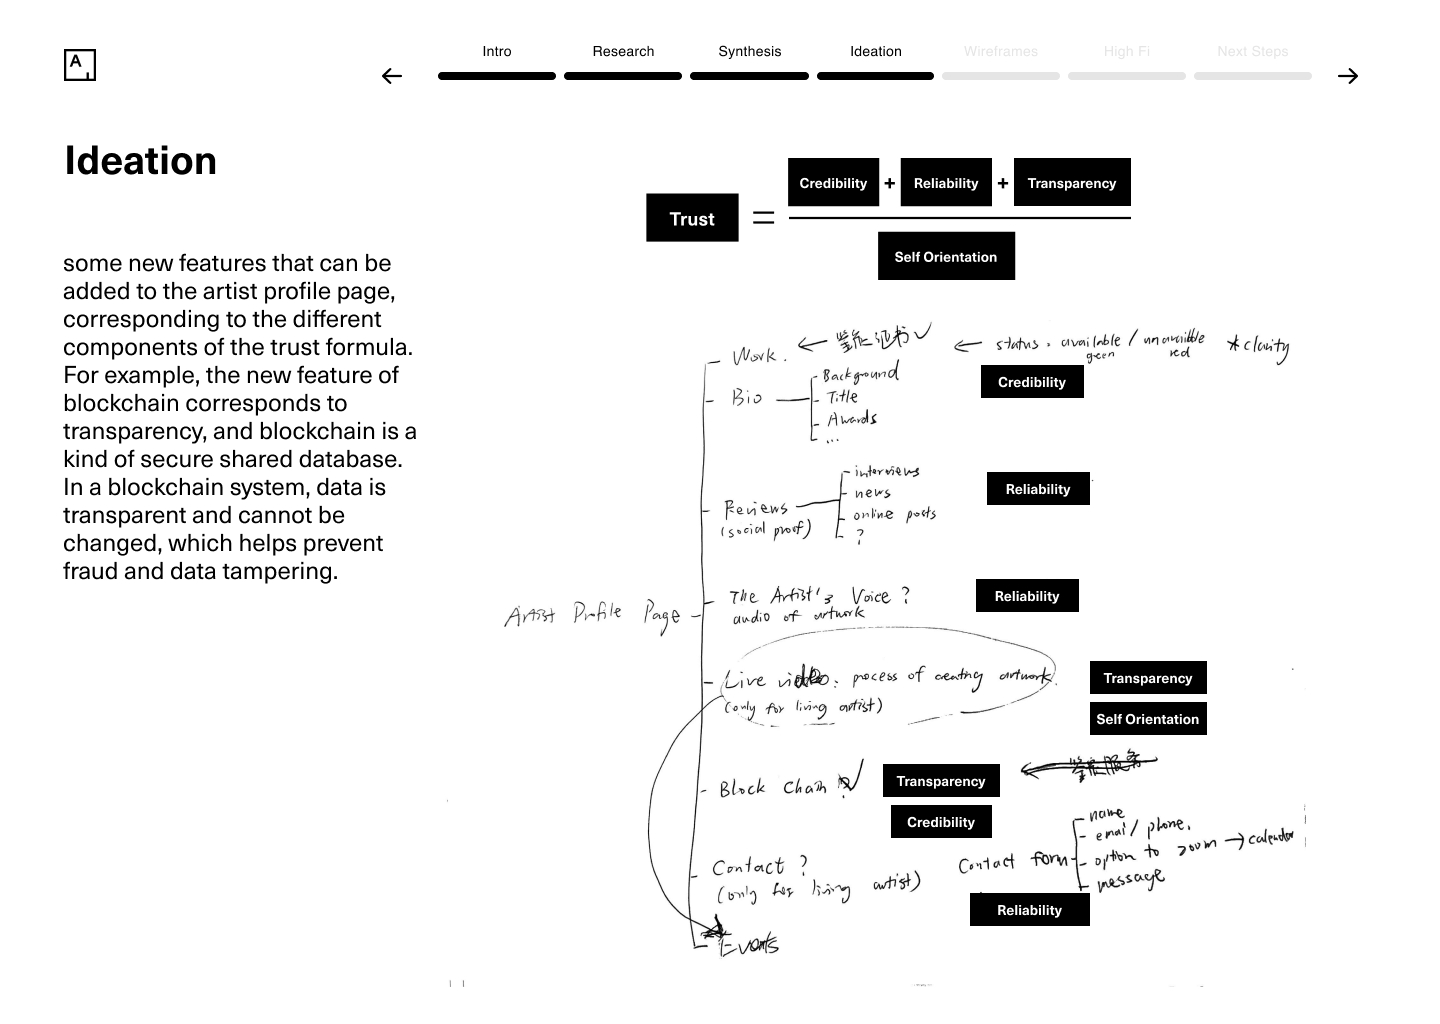 A
Intro
Research
Synthesis
Ideation
Wireframes
High Fi
Next Steps
Ideation
some new features that can be
added to the artist profile page,
corresponding to the different
components of the trust formula.
For example, the new feature of
blockchain corresponds to
transparency, and blockchain is a
kind of secure shared database.
In a blockchain system, data is
transparent and cannot be
changed, which helps prevent
fraud and data tampering.
Trust = 
Credibility + Reliability + Transparency
Self Orientation
Artist Profile Page
Work. ← 鉴定证书 ✓ ← status: available / unavailble *clarity
green red
Credibility
Bio
Background
Title
Awards
...
Reviews
(social proof)
interviews
news
online posts
?
Reliability
The Artist's Voice ?
audio of artwork
Reliability
Live video: process of creating artwork.
(only for living artist)
Transparency
Self Orientation
Block Chain ✓
Transparency
Credibility
Contact ?
(only for living artist)
Contact form
name
email / phone.
option to zoom → calendar
message
Reliability
Events